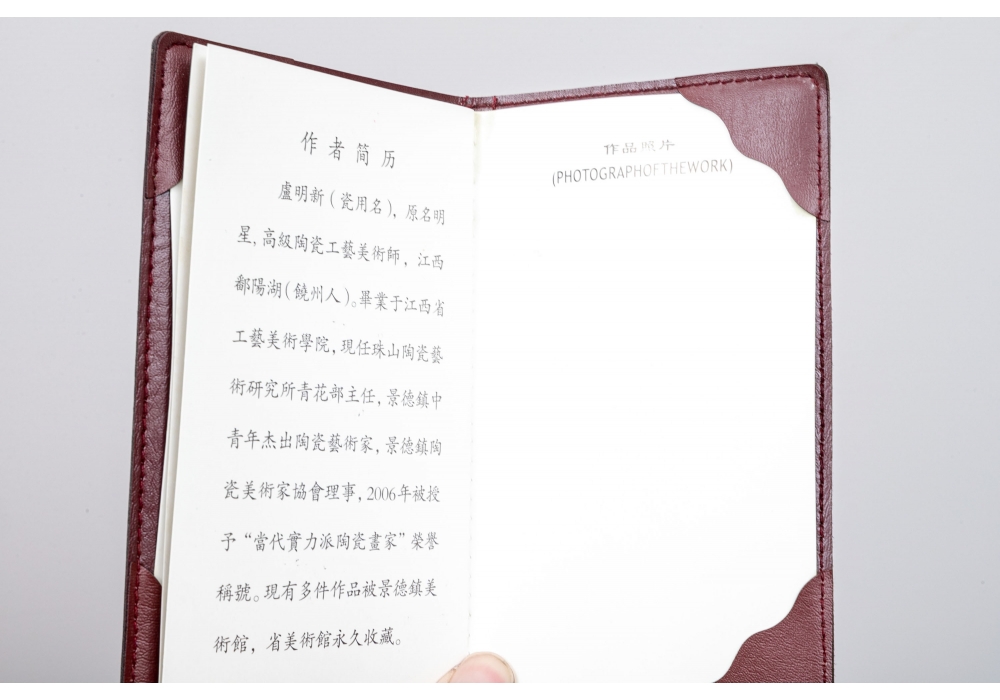 作者简历
盧明新(瓷用名),原名明
星,高級陶瓷工藝美術師,江西
鄱陽湖(饒州人)。畢業于江西省
工藝美術學院,現任珠山陶瓷藝
術研究所青花部主任,景德鎮中
青年杰出陶瓷藝術家,景德鎮陶
瓷美術家協會理事,2006年被授
予“當代實力派陶瓷畫家”榮譽
稱號。現有多件作品被景德鎮美
術館,省美術館永久收藏。
作品照片
(PHOTOGRAPHOFTHEWORK)